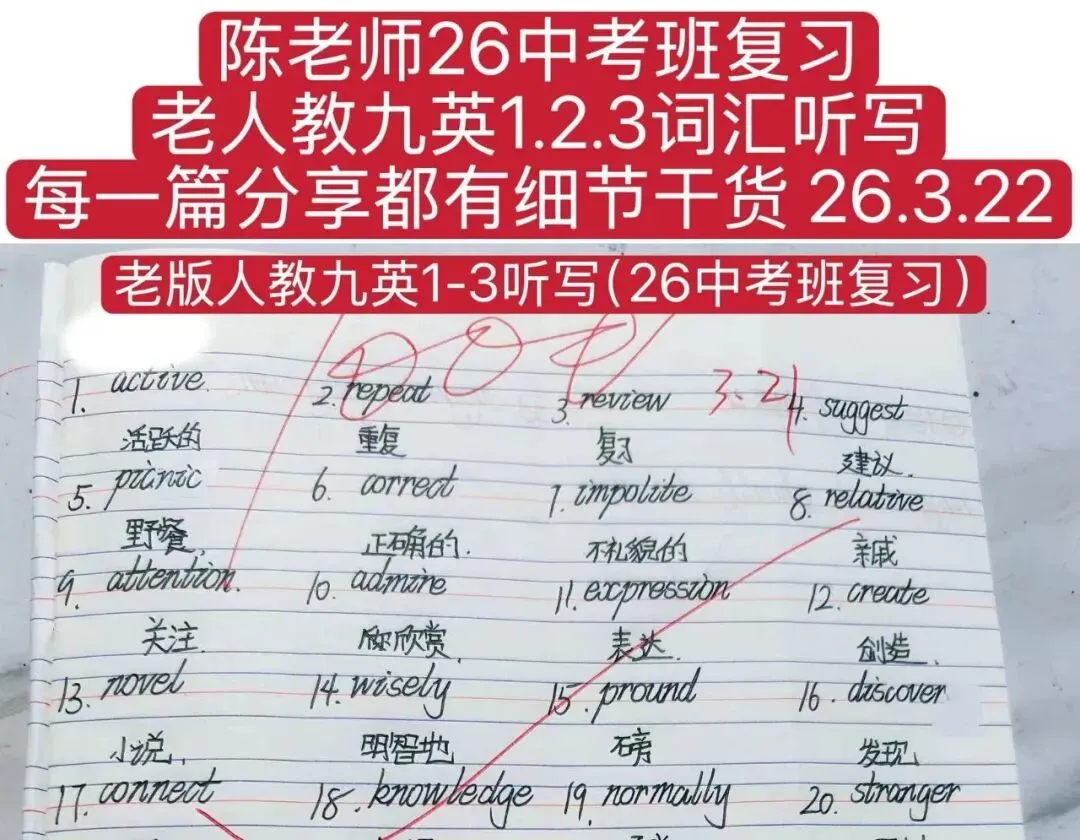 陈老师26中考班复习
老人教九英1.2.3词汇听写
每一篇分享都有细节干货 26.3.22
老版人教九英1-3听写(26中考班复习)
3.21
1. active. 2. repeat 3. review 4. suggest
活跃的 重复 复习 建议.
5. picnic 6. correct 7. impolite 8. relative
野餐, 正确的. 不礼貌的 亲戚
9. attention. 10. admire 11. expression 12. create
关注. 欣赏, 表达. 创造.
13. novel 14. wisely 15. pround 16. discover
小说, 明智地 磅 发现
17. connect 18. knowledge 19. normally 20. stranger